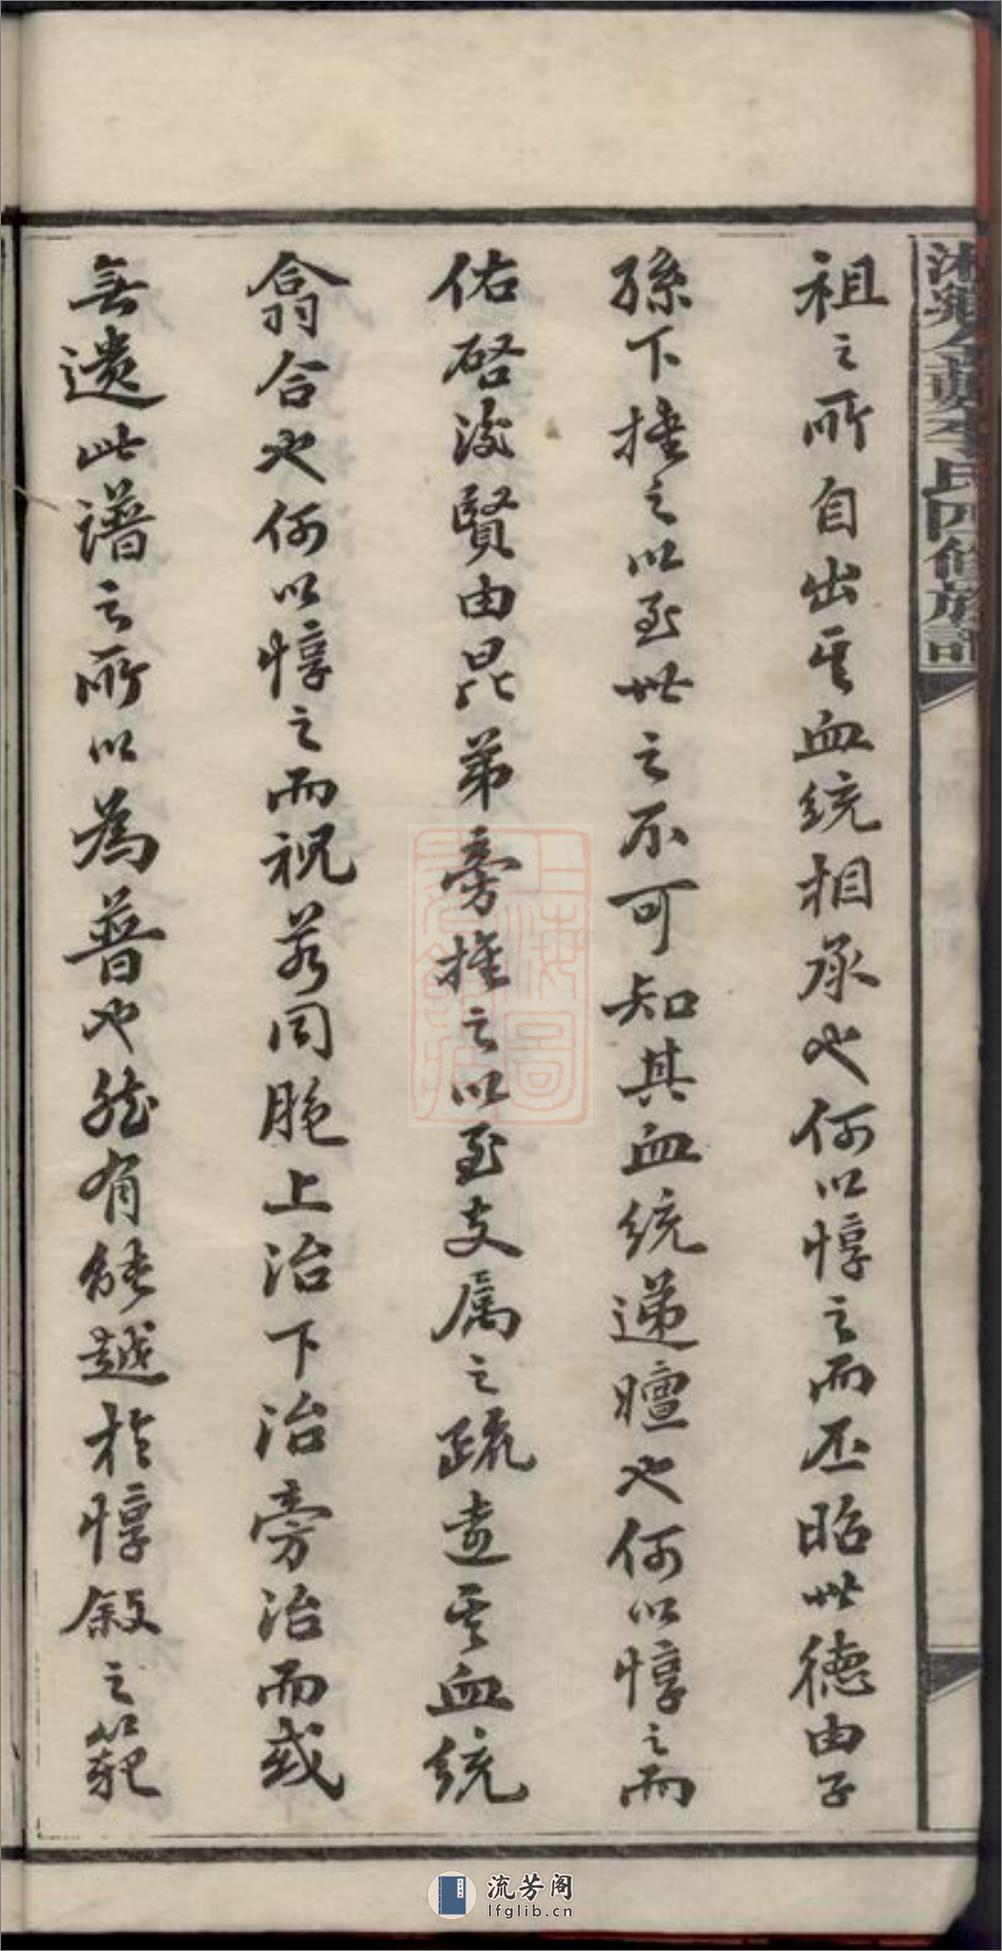 氏四修族譜
祖之所自出其血統相承也何以惇之而丕昭世德由子
孫下推之以至世之不可知其血統遞嬗也何以惇之而
佑啓後賢由昆弟旁推之以至支属之疏遠其血統
翕合也何以惇之而視若同胞上治下治旁治而或
無遺此譜之所以為普也然有能越於惇叙之範
流芳阁
lfglib.cn